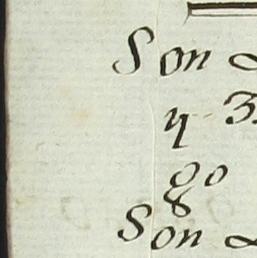 Son
y 3
go
Son